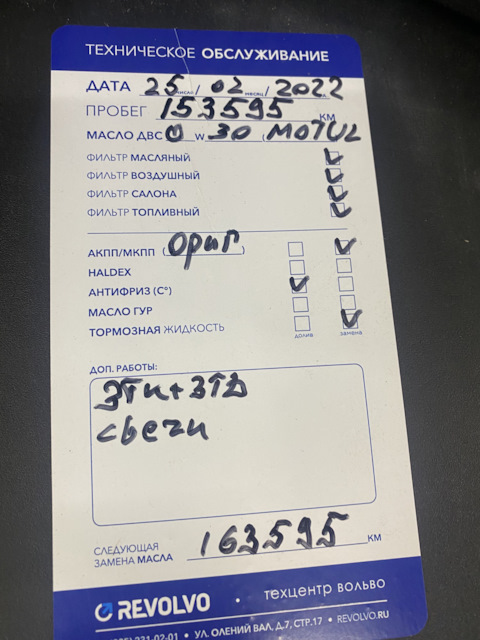 ТЕХНИЧЕСКОЕ ОБСЛУЖИВАНИЕ
ДАТА 25 / 02 / 2022
число месяц
ПРОБЕГ 153595 КМ
МАСЛО ДВС 0 W 30 (MOTUL
ФИЛЬТР МАСЛЯНЫЙ
ФИЛЬТР ВОЗДУШНЫЙ
ФИЛЬТР САЛОНА
ФИЛЬТР ТОПЛИВНЫЙ
АКПП/МКПП (Ориг)
HALDEX
АНТИФРИЗ (C°)
МАСЛО ГУР
ТОРМОЗНАЯ ЖИДКОСТЬ
долив замена
ДОП. РАБОТЫ:
ЗТК+ЗТД
свечи
СЛЕДУЮЩАЯ
ЗАМЕНА МАСЛА 163595 КМ
REVOLVO · техцентр вольво
231-02-01 • УЛ. ОЛЕНИЙ ВАЛ, Д.7, СТР.17 • REVOLVO.RU